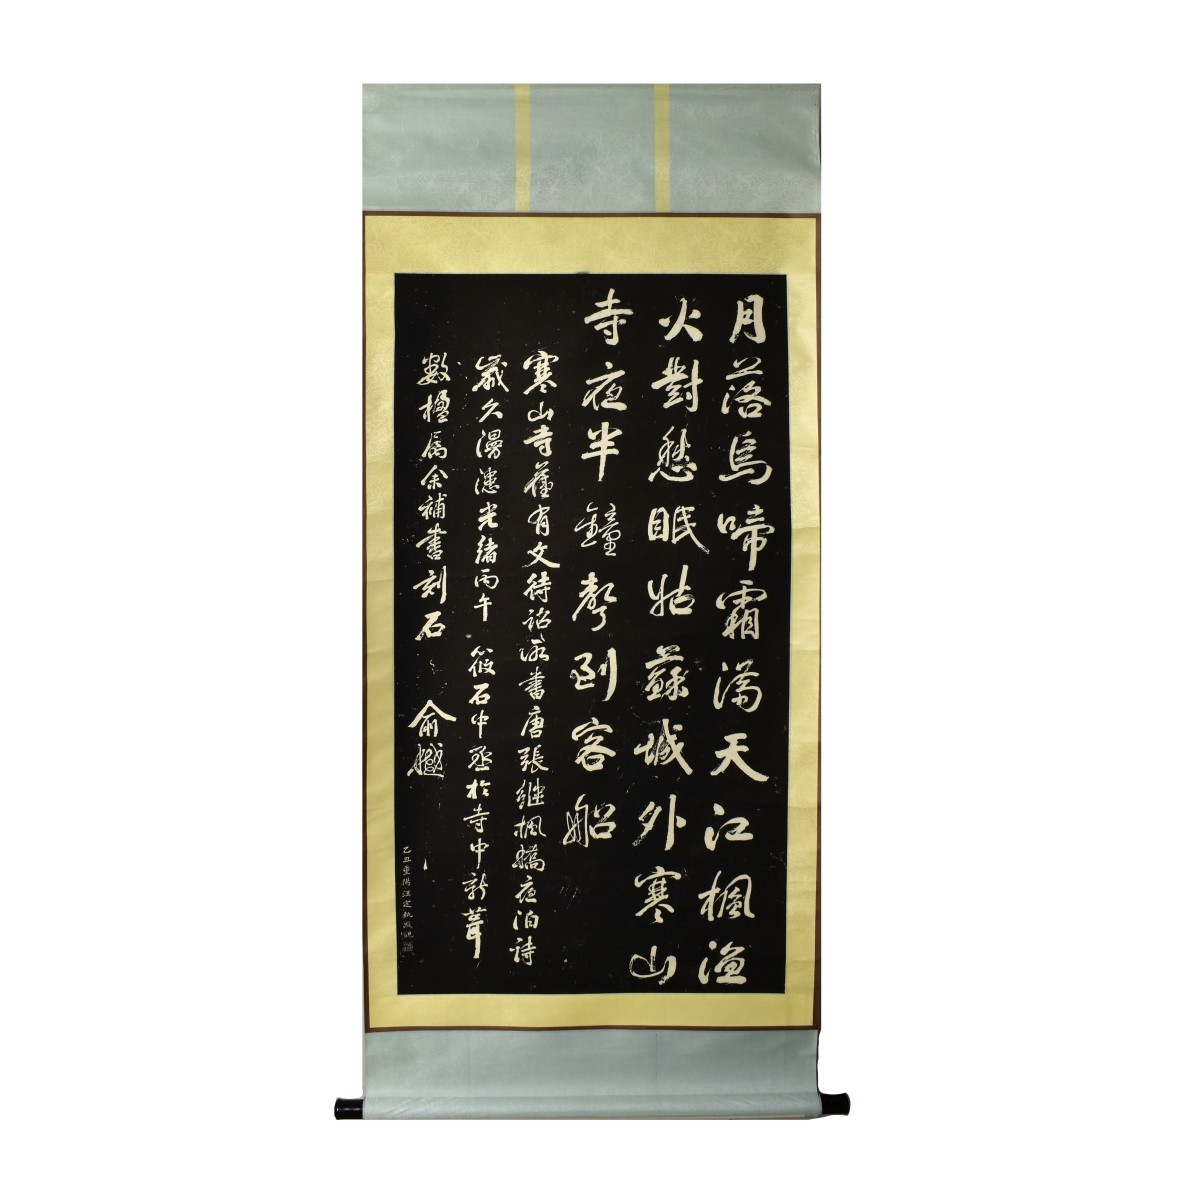 月落烏啼霜滿天江楓漁
火對愁眠姑蘇城外寒山
寺夜半鐘聲到客船
寒山寺舊有文待詔所書唐張繼楓橋夜泊詩
歲久漫漶光緒丙午 筱石中丞於寺中新葺
數楹属余補書刻石 俞樾
乙丑重陽汪定執敬觀